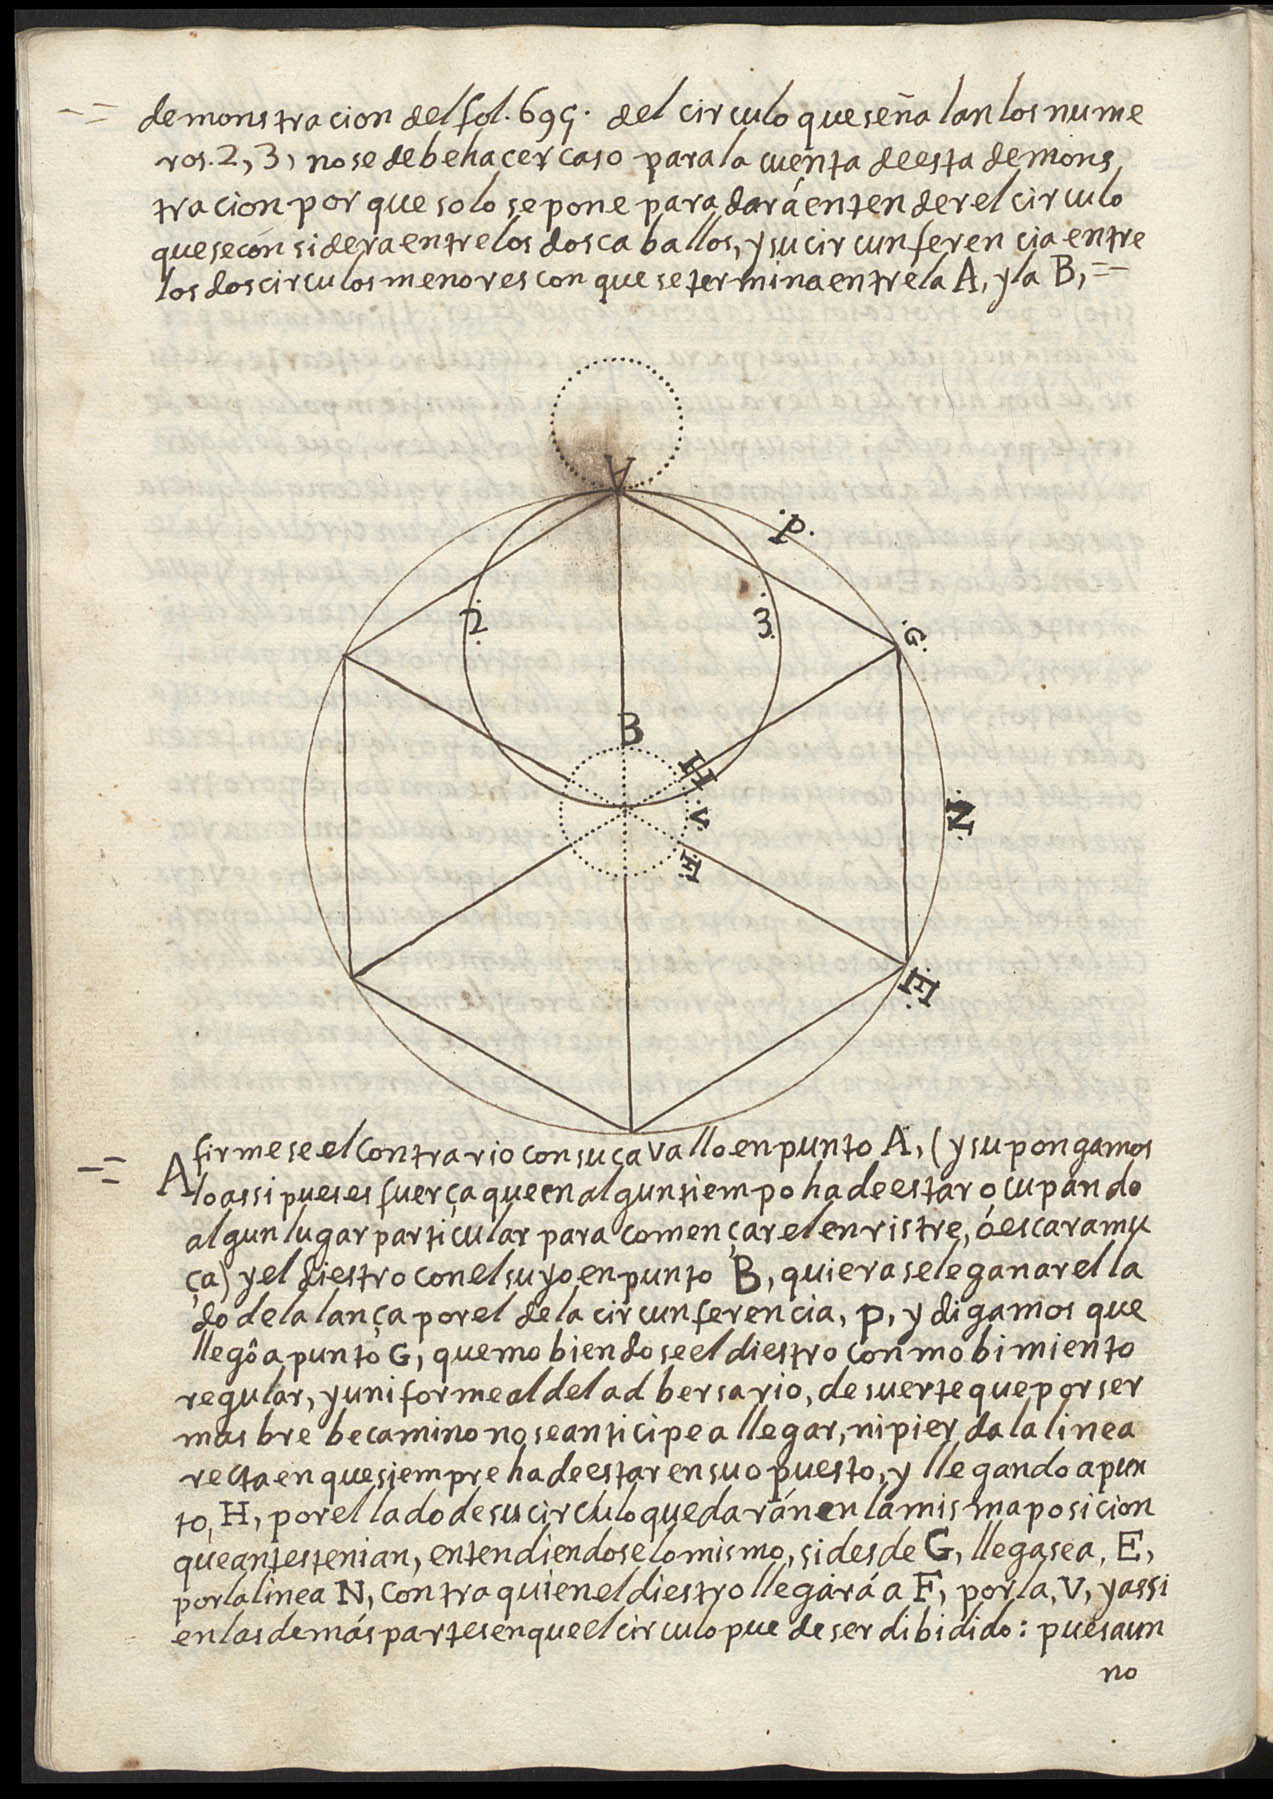 demonstracion del fol. 695. del circulo que señalan los nume
ros. 2, 3, no se debe hacer caso para la cuenta de esta demons
tracion por que solo se pone para dar á entender el circulo
que se considera entre los dos caballos, y su circunferencia entre
los dos circulos menores con que se termina entre la A, y la B,
A
.P.
2
3
.G.
B
H
.V.
.F.
.N.
.E.
Afirmese el contrario con su cavallo en punto A, (y supongamos
lo assi pues es fuerça que en algun tiempo ha de estar ocupando
algun lugar particular para començar el enristre, ó escaramu
ça) y el diestro con el suyo en punto B, quierasele ganar el la
do de la lança por el de la circunferencia, P, y digamos que
llegô a punto G, que mobiendose el diestro con mobimiento
regular, y uniforme al del adbersario, de suerte que por ser
mas brebe camino no se anticipe a llegar, ni pierda la linea
recta en que siempre ha de estar en su opuesto, y llegando a pun
to, H, por el lado de su circulo quedarán en la misma posicion
que antes tenian, entendiendose lo mismo, si desde G, llegase a, E,
por la linea N, contra quien el diestro llegará a F, por la, V, y assi
en las demás partes en que el circulo puede ser dibidido: pues aun
no